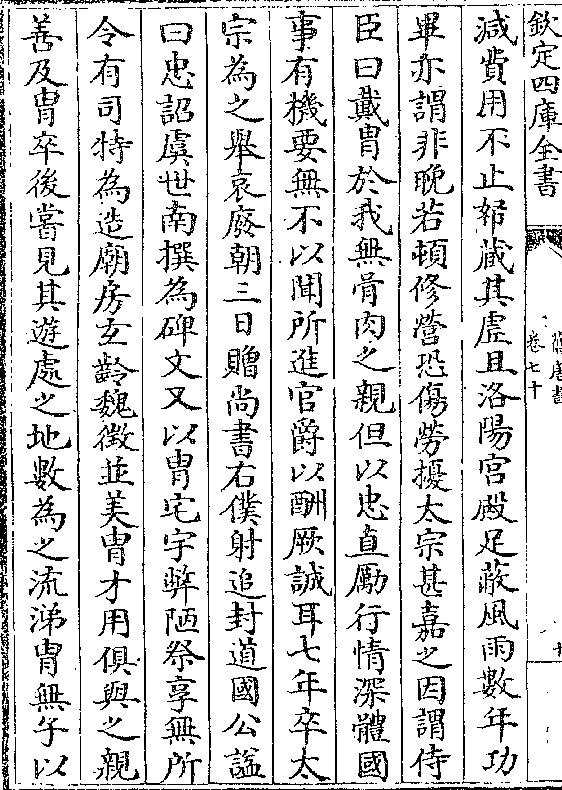 欽定四庫全書
舊唐書
卷七十
減費用不止帑藏其虚且洛陽宫殿足蔽風雨數年功
畢亦謂非晚若頓修營恐傷勞擾太宗甚嘉之因謂侍
臣曰戴胄於我無骨肉之親但以忠直勵行情深體國
事有機要無不以聞所進官爵以酬厥誠耳七年卒太
宗為之舉哀廢朝三日贈尚書右僕射追封道國公諡
曰忠詔虞世南撰為碑文又以胄宅宇弊陋祭享無所
令有司特為造廟房玄齡魏徵並美胄才用俱與之親
善及胄卒後嘗見其遊處之地數為之流涕胄無子以